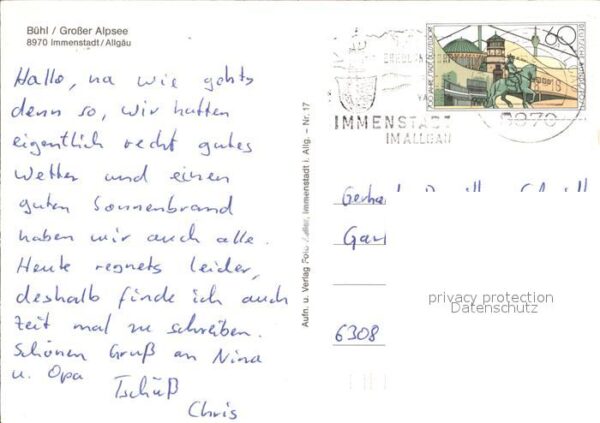 Bühl / Großer Alpsee
8970 Immenstadt/Allgäu
Hallo, na wie gehts
denn so, wir hatten
eigentlich recht gutes
Wetter und einen
guten Sonnenbrand
haben wir auch alle.
Heute regnets leider,
deshalb finde ich auch
Zeit mal zu schreiben.
Schönen Gruß an Nina
u. Opa Tschüß
Chris
Aufn. u. Verlag Foto Immenstadt i. Allg. – Nr. 17
IMMENSTADT
IM ALLGÄU
8970
60
DEUTSCHE BUNDESPOST
6308
privacy protection
Datenschutz